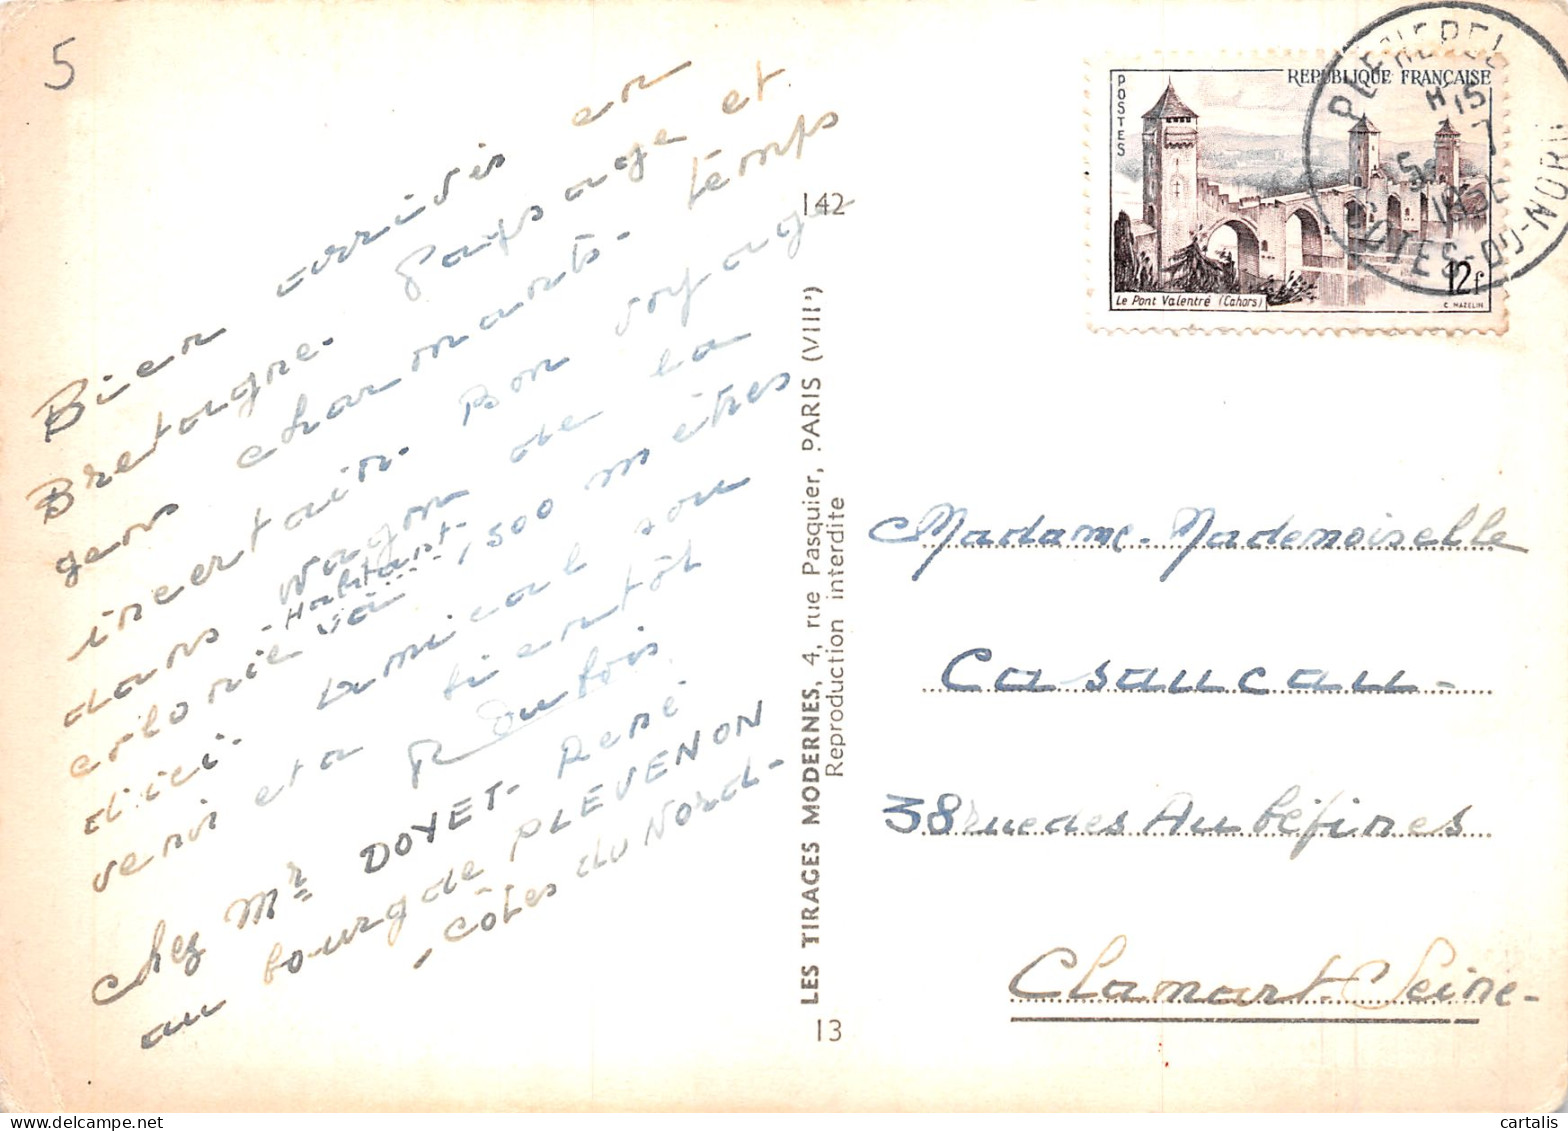 5
Bien arrivés en
Bretagne. Paysage et
gens charmants. temps
incertain. Bon voyage
dans wagon de la
colonie
- Habitant à 1,500 mètres
d'ici. Amical sou
venir et à bientôt
R Dubois
chez Mr DOYET - René
au bourg de PLEVENON
- Côtes du Nord -
142
LES TIRAGES MODERNES, 4, rue Pasquier, PARIS (VIIIe)
Reproduction interdite
13
POSTES
REPUBLIQUE FRANÇAISE
Le Pont Valentré (Cahors)
12f
C. MAZELIN
H 15
COTES-DU-NORD
Madame. Mademoiselle
Casaucau -
38 rue des Aubéfines
Clamart - Seine -
cartalis